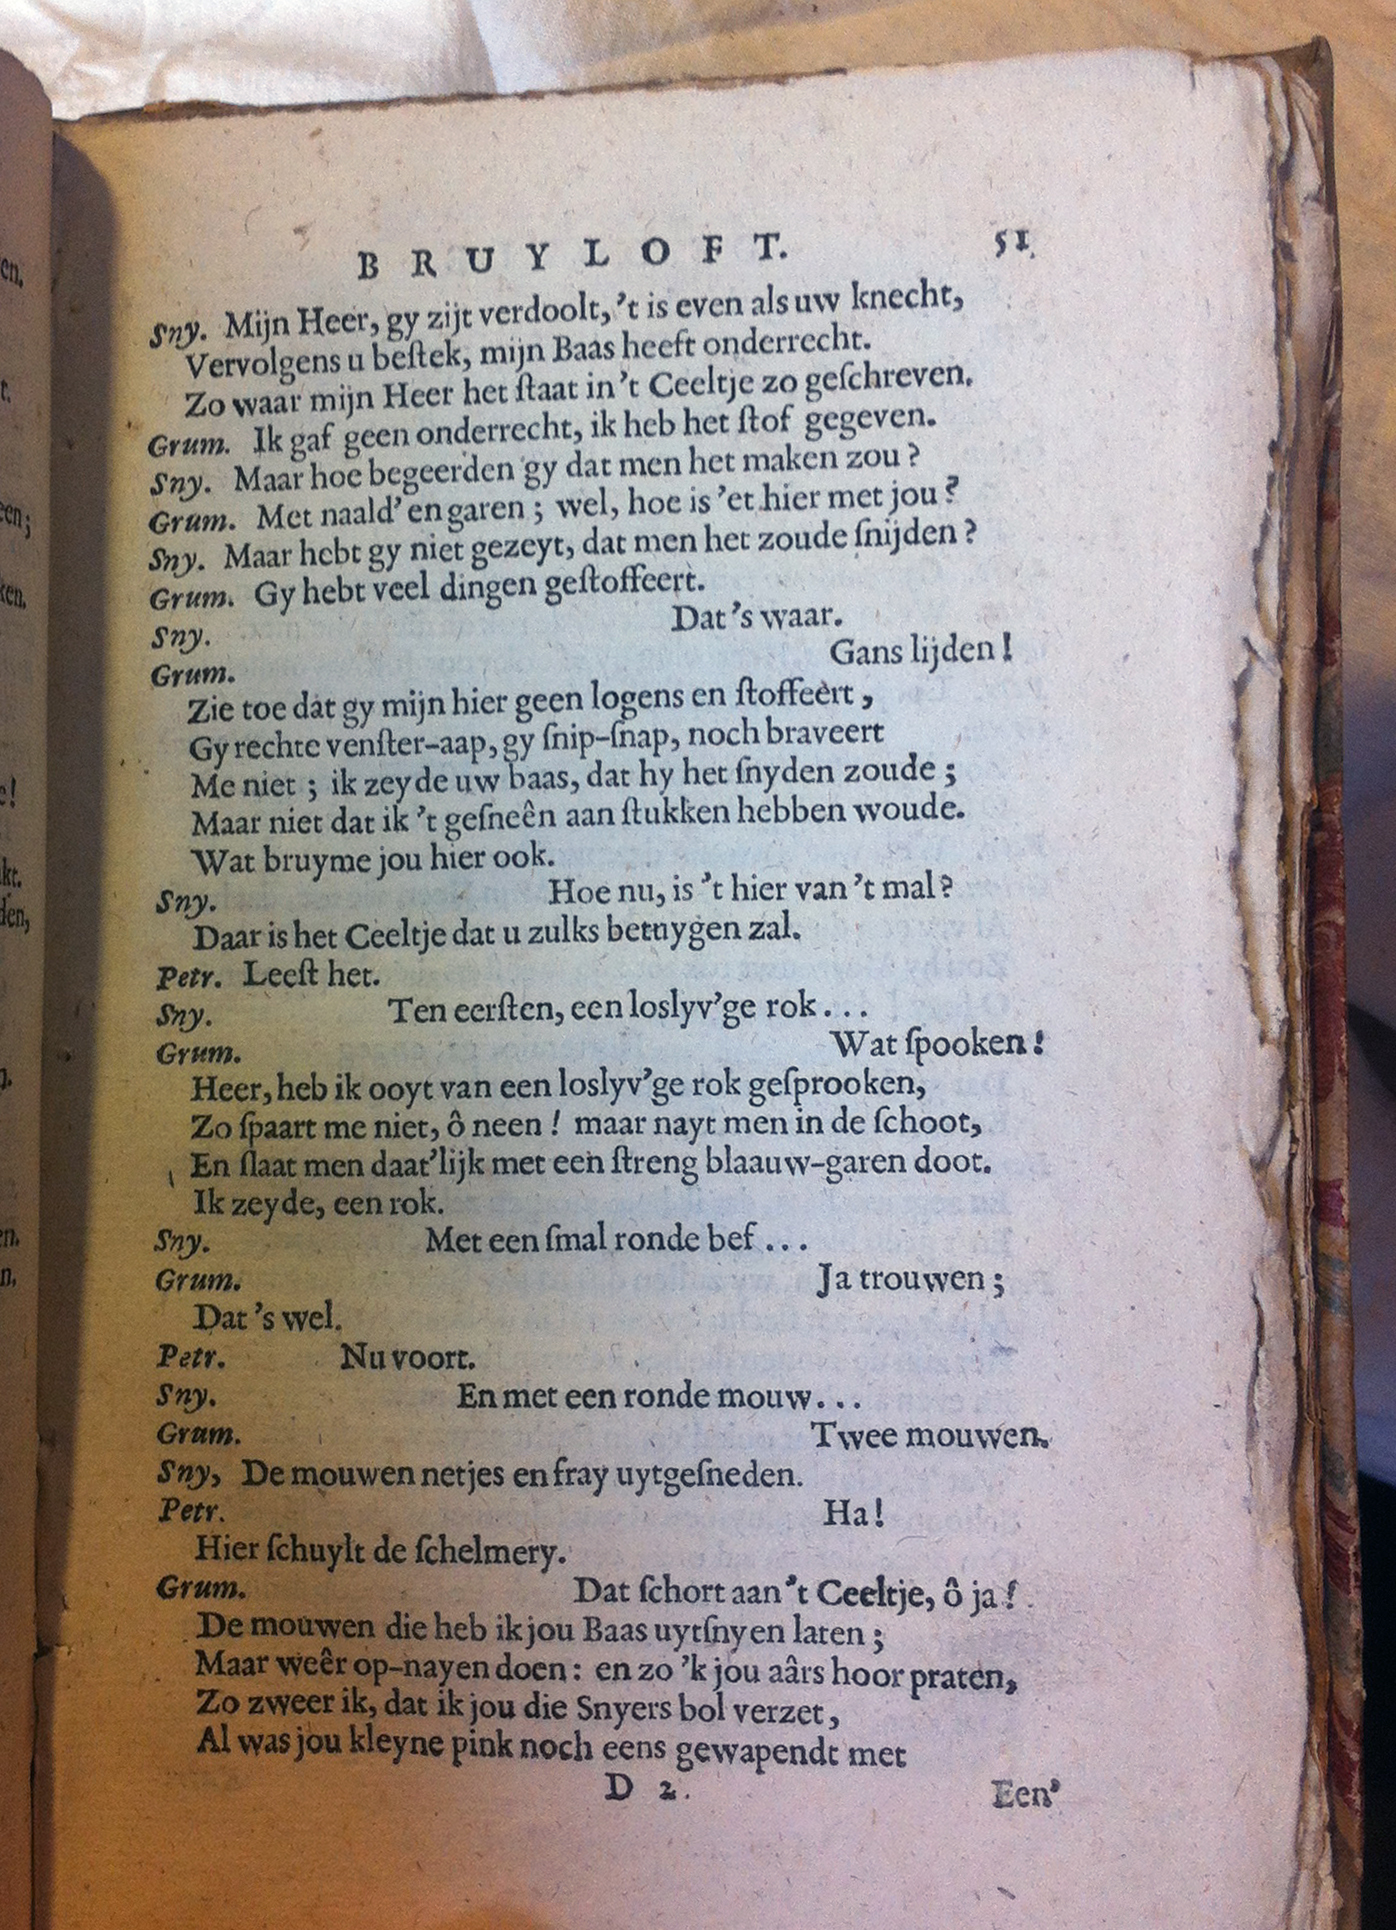 BRUYLOFT. 51.
Sny. Mijn Heer, gy zijt verdoolt, 't is even als uw knecht,
Vervolgens u beſtek, mijn Baas heeft onderrecht.
Zo waar mijn Heer het ſtaat in 't Ceeltje zo geſchreven.
Grum. Ik gaf geen onderrecht, ik heb het ſtof gegeven.
Sny. Maar hoe begeerden gy dat men het maken zou?
Grum. Met naald' en garen; wel, hoe is 'et hier met jou?
Sny. Maar hebt gy niet gezeyt, dat men het zoude ſnijden?
Grum. Gy hebt veel dingen geſtoffeert.
Sny. Dat 's waar.
Grum. Gans lijden!
Zie toe dat gy mijn hier geen logens en ſtoffeert,
Gy rechte venſter-aap, gy ſnip-ſnap, noch braveert
Me niet; ik zeyde uw baas, dat hy het ſnyden zoude;
Maar niet dat ik 't geſneên aan ſtukken hebben woude.
Wat bruyme jou hier ook.
Sny. Hoe nu, is 't hier van 't mal?
Daar is het Ceeltje dat u zulks betuygen zal.
Petr. Leeſt het.
Sny. Ten eerſten, een loslyv'ge rok...
Grum. Wat ſpooken!
Heer, heb ik ooyt van een loslyv'ge rok geſprooken,
Zo ſpaart me niet, ô neen! maar nayt men in de ſchoot,
En ſlaat men daat'lijk met een ſtreng blaauw-garen doot.
Ik zeyde, een rok.
Sny. Met een ſmal ronde bef...
Grum. Ja trouwen;
Dat 's wel.
Petr. Nu voort.
Sny. En met een ronde mouw...
Grum. Twee mouwen.
Sny, De mouwen netjes en fray uytgeſneden.
Petr. Ha!
Hier ſchuylt de ſchelmery.
Grum. Dat ſchort aan 't Ceeltje, ô ja!
De mouwen die heb ik jou Baas uytſnyen laten;
Maar weêr op-nayen doen: en zo 'k jou aârs hoor praten,
Zo zweer ik, dat ik jou die Snyers bol verzet,
Al was jou kleyne pink noch eens gewapendt met
D 2. Een'
en.
t.
een;
ken.
e!
kt.
den,
n.
en.
n.